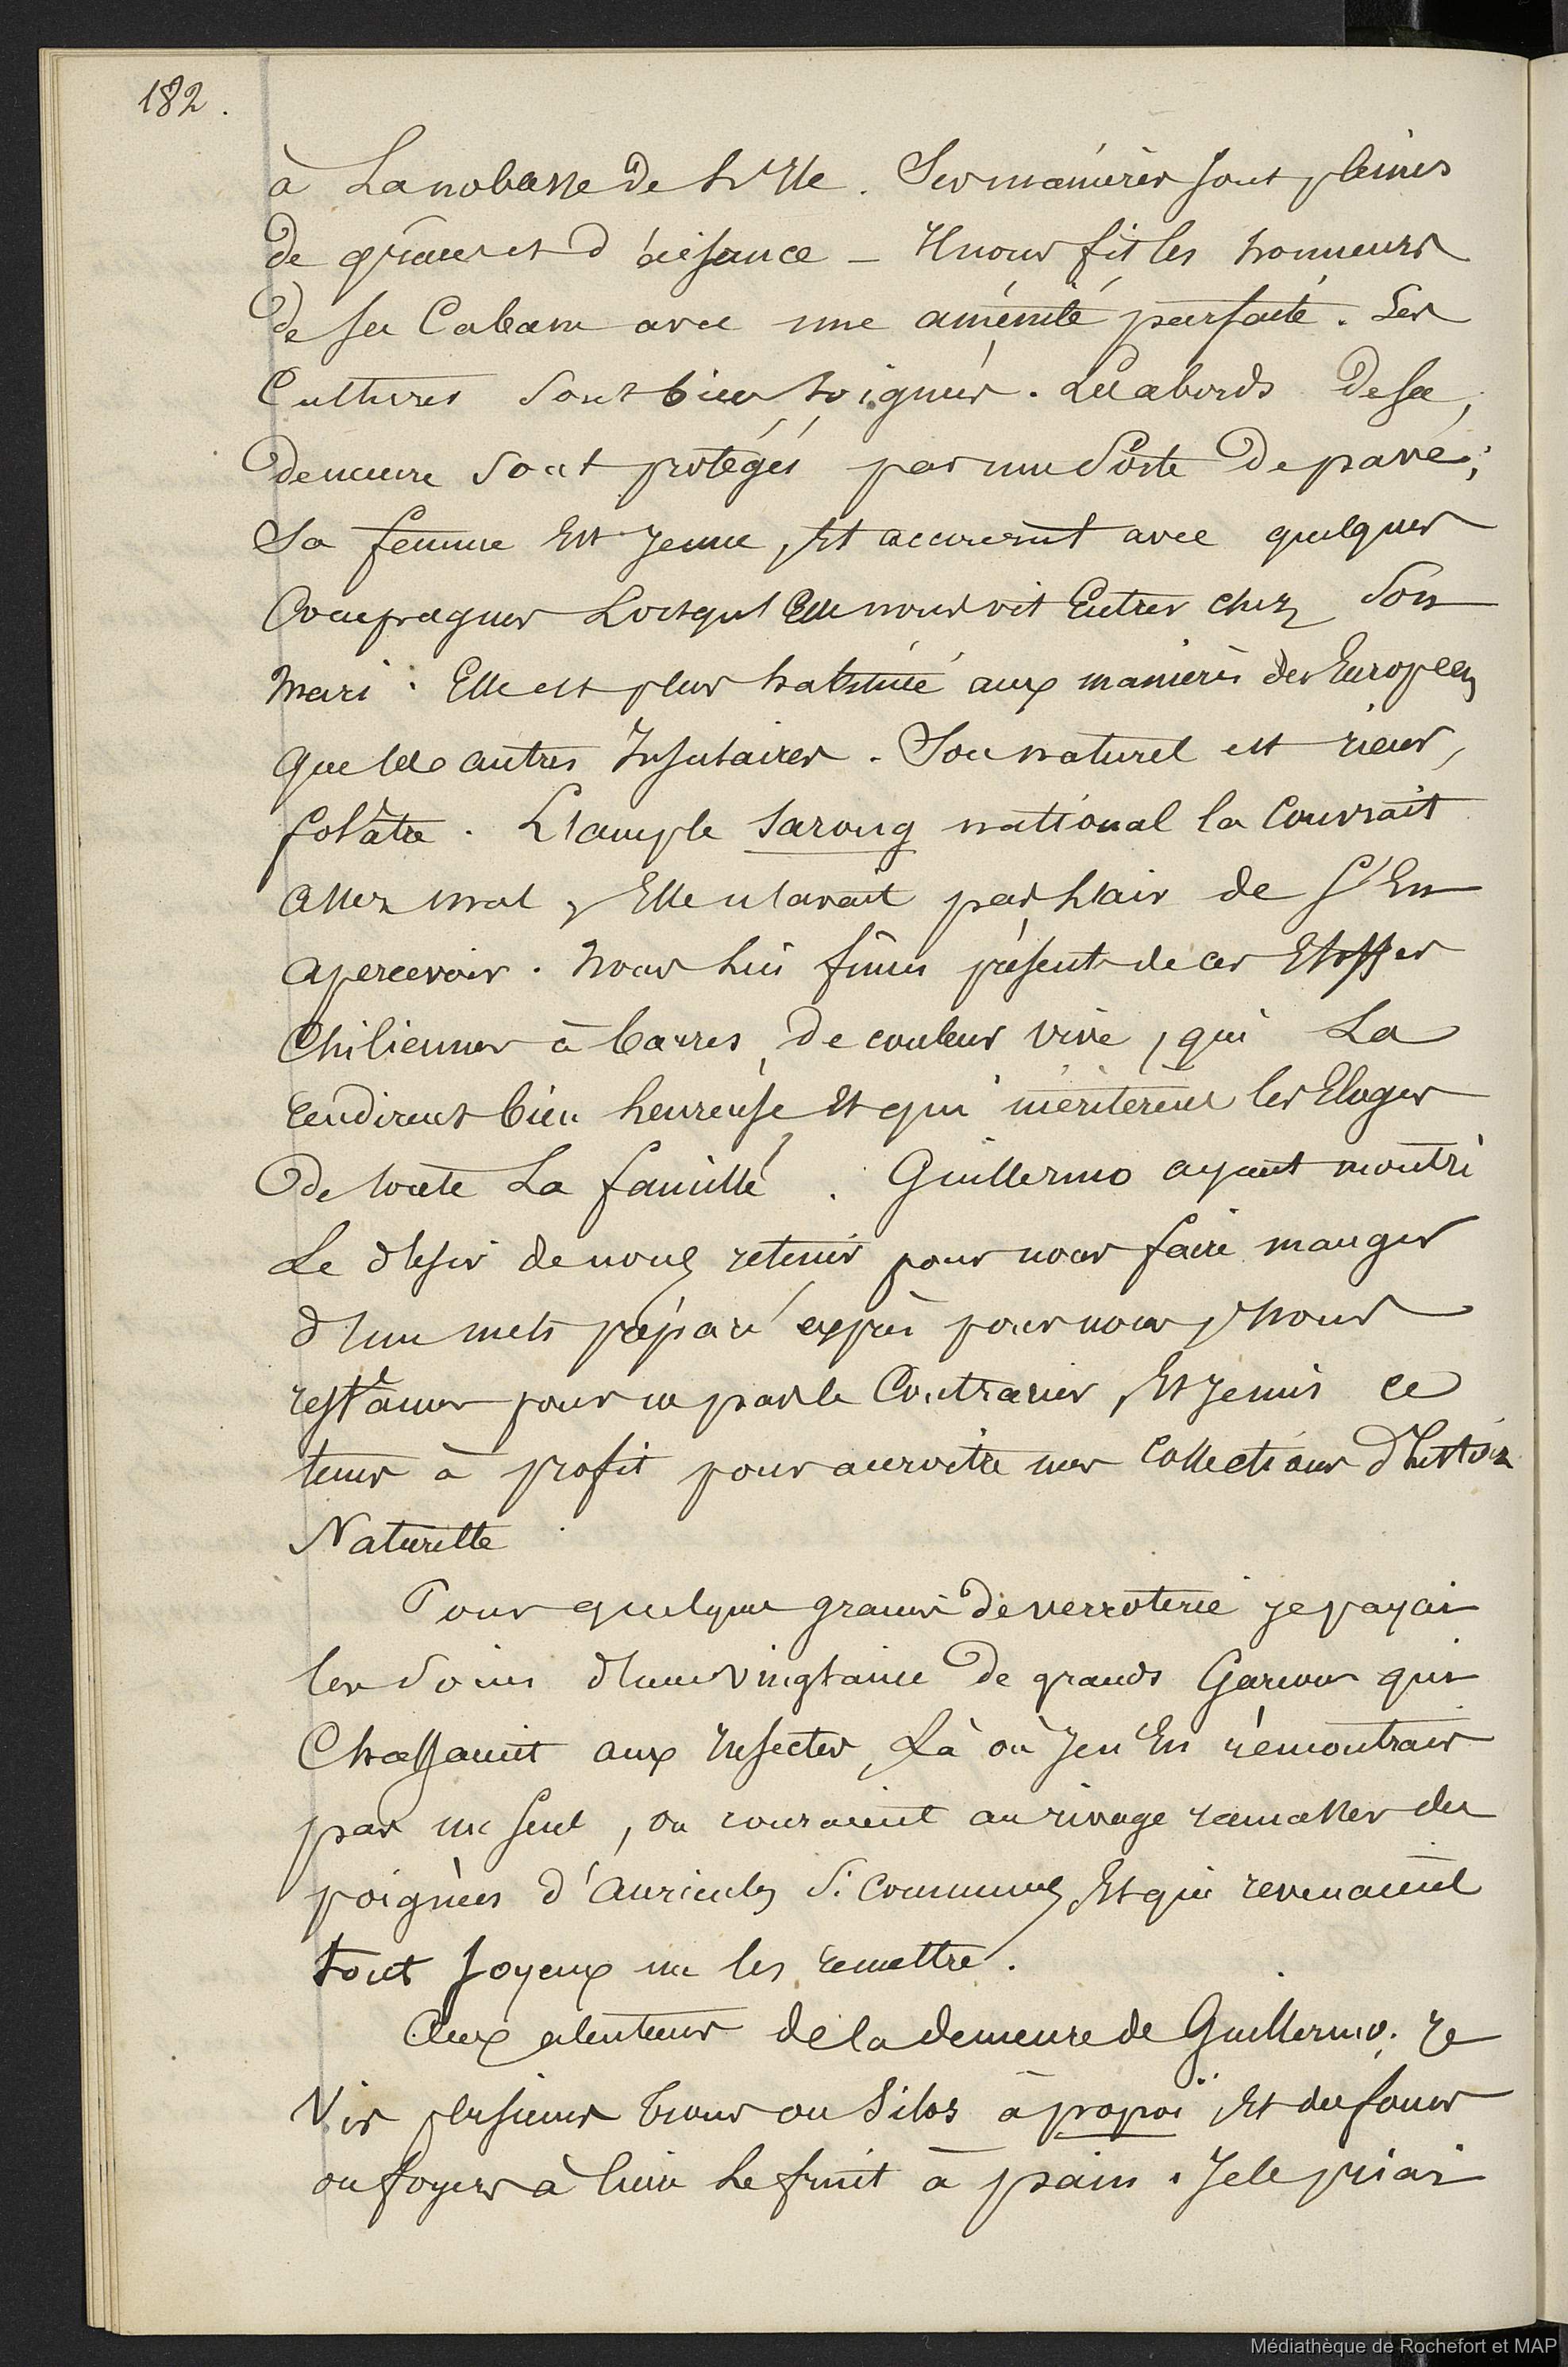 182.
à La noblesse de l'Ile. Ses manières sont pleines
de grâces et d'aisance – Il nous fit les honneurs
de sa Cabane avec une aménité parfaite. Ses
Cultures sont bien soignées. Les abords de sa
demeure sont protégés par une sorte de pavé;
Sa femme Est jeune, Et accourut avec quelques
Compagnes Lorsqu'Elle nous vit Entrer chez son
mari. Elle est plus habituée aux manières des Européens
que les autres Insulaires. Son naturel est rieur,
folâtre. L'ample sarong national la Couvrait
assez mal, Elle n'avait pas l'air de s'En
apercevoir. Nous lui fimes présent de ces Etoffes
Chiliennes à barres, de couleur vive, qui La
rendirent bien heureuse Et qui méritèrent les Eloges
de toute La famille. Guillermo ayant montré
Le désir de nous retenir pour nous faire manger
d'un mets préparé exprès pour nous, nous
restâmes pour ne pas le Contrarier, Et je mis ce
tems à profit pour accroitre mes Collections d'histoire
Naturelle
Pour quelques grains de verroterie je payai
les soins d'une vingtaine de grands Garçons qui
Chassaient aux Insectes, Là où j'en En rémontrais
pas un seul, ou couraient au rivage ramasser des
poignées d'Auricules si communes Et qui revenaient
tout joyeux me les remettre.
Aux alentours de la demeure de Guillermo. Je
Vis plusieurs trous ou Silos à popoï Et des fours
ou foyers à cuire Le fruit à pain. Je le priai
Médiathèque de Rochefort et MAP